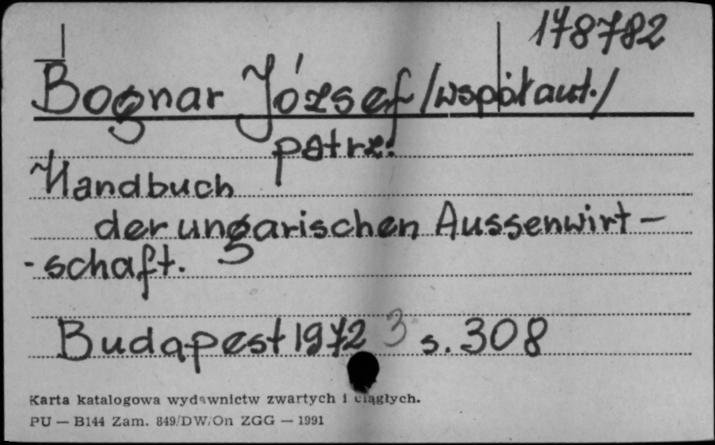 178782
Bognar József /współaut./
patrz:
Handbuch
der ungarischen Aussenwirt-
-schaft.
Budapest 1972 3 s. 308
Karta katalogowa wydawnictw zwartych i ciągłych.
PU — B144 Zam. 849/DW/On ZGG — 1991